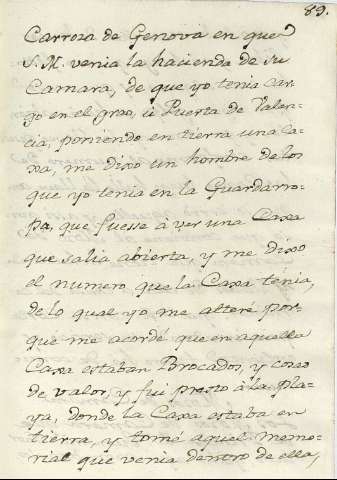 89.
Carroza de Genova en que
S. M. venia la hacienda de su
Camara, de que yo tenia car-
go en el grao, ù Puerta de Valen-
cia, poniendo en tierra una ca-
xa, me dixo un hombre de los
que yo tenia en la Guardarro-
pa, que fuesse à ver una Caxa
que salia abierta, y me dixo
el numero que la Caxa tenia,
de lo qual yo me alteré por-
que me acordé que en aquella
Caxa estaban Brocados, y cosas
de valor, y fui presto à la pla-
ya, donde la Caxa estaba en
tierra, y tomé aquel memo-
rial que venia dentro de ella,